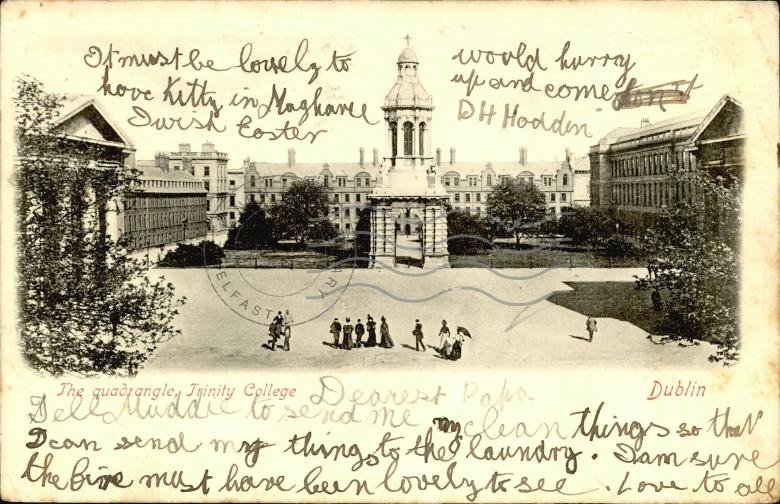 It must be lovely to
have Kitty in Magheree
I wish Easter
would hurry
up and come
D H Hodden
BELFAST
LIBRARY
The quadrangle, Trinity College
Dublin
Dearest Papa
Tell Muddie to send me my clean things so that
I can send my things to the laundry. I am sure
the fire must have been lovely to see. Love to all